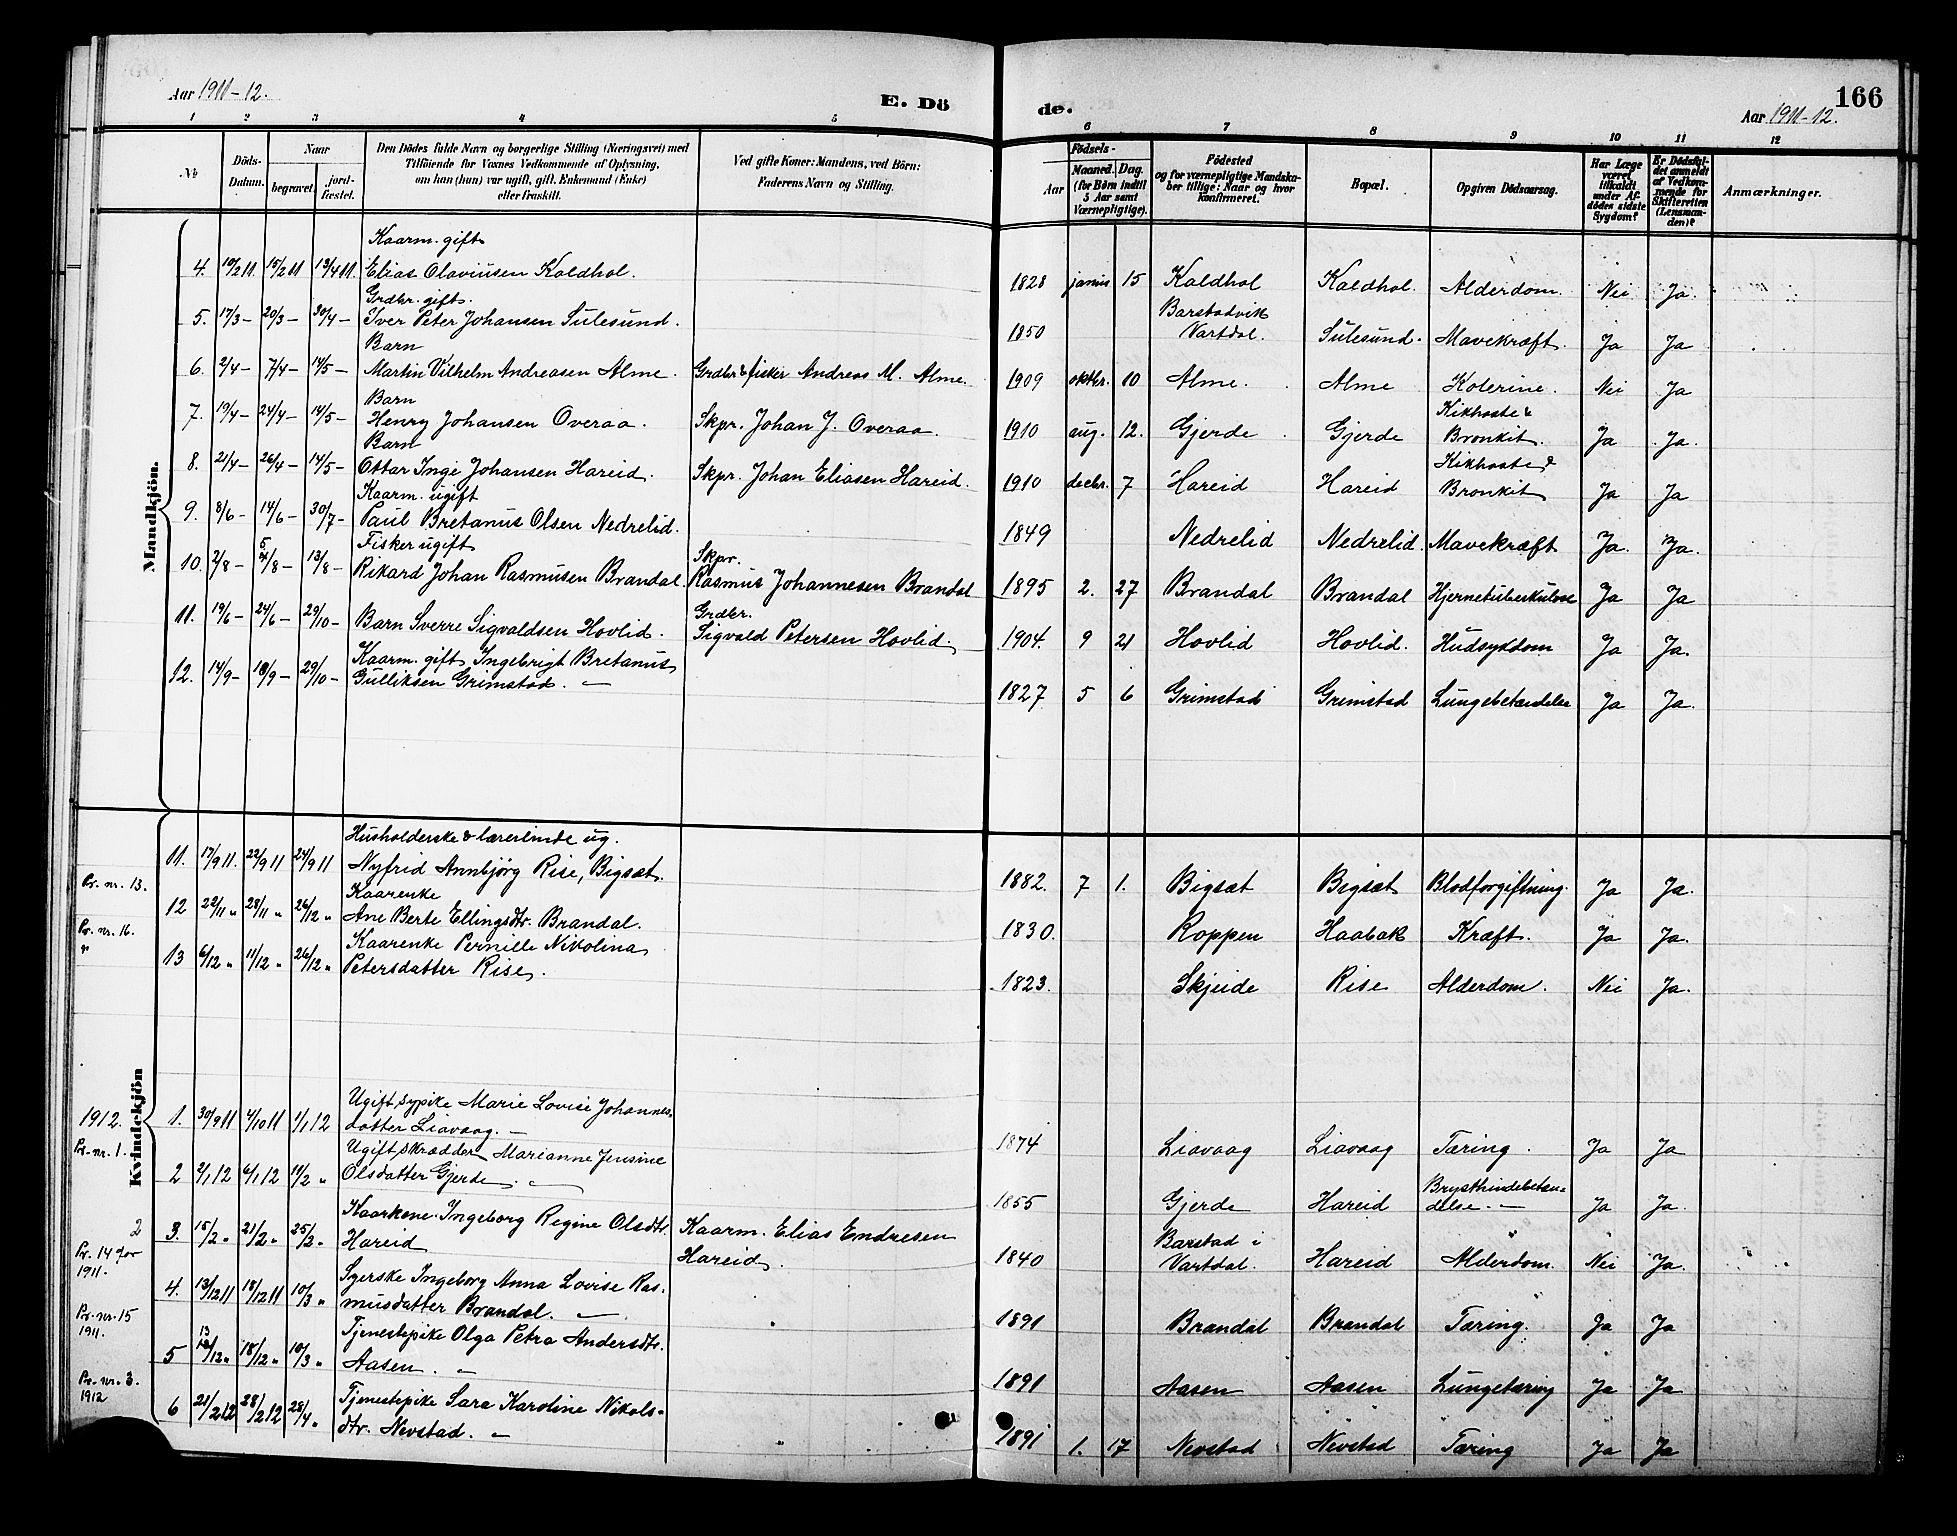 Aar 1911-12.
E. Dö
de.
Aar 1911-12.
166
1 2 3 4 5 6 7 8 9 10 11 12
No
Döds-
Datum.
Naar
begravet.
jord-
fæstet.
Den Dödes fulde Navn og borgerlige Stilling (Næringsvei) med
Tilföiende for Voxnes Vedkommende af Oplysning,
om han (hun) var ugift, gift, Enkemand (Enke)
eller fraskilt.
Ved gifte Koner: Mandens, ved Börn:
Faderens Navn og Stilling.
Födsels-
Aar
Maaned. Dag.
(for Börn indtil
5 Aar samt
Værnepligtige).
Födested
og for værnepligtige Mandska-
ber tillige: Naar og hvor
konfirmeret.
Bopæl.
Opgiven Dödsaarsag.
Har Læge
været
tilkaldt
under Af-
dödes sidste
Sygdom?
Er Dödsfal-
det anmeldt
af Vedkom-
mende for
Skifteretten
(Lensman-
den)?
Anmærkninger.
Mandkjön.
Kaarm. gift
4. 10/2 11. 15/2 11 13/4 11. Elias Olaviusen Koldhol. 1828 januar 15 Koldhol Koldhol. Alderdom. Nei Ja.
Grdbr. gift.
5. 17/3 - 20/3 - 30/4 - Iver Peter Johansen Sulesund. 1850 Barstadvik
Vartdal. Sulesund. Mavekræft. Ja Ja
Barn
6. 2/4 - 7/4 - 14/5 - Martin Vilhelm Andreasen Alme. Grdbr & fisker Andreas M. Alme. 1909 oktbr. 10 Alme. Alme Kolerine. Nei Ja
Barn
7. 19/4 - 24/4 - 14/5 - Henry Johansen Overaa. Skpr. Johan J. Overaa. 1910 aug. 12. Gjerde Gjerde Kikhoste &
Bronkit. Ja Ja.
Barn
8. 21/4 - 26/4 - 14/5 - Ottar Inge Johansen Hareid. Skpr. Johan Eliasen Hareid. 1910 decbr. 7 Hareid Hareid Kikhoste &
Bronkit Ja Ja
Kaarm. ugift
9. 8/6 - 14/6 - 30/7 - Paul Bretanus Olsen Nedrelid. 1849 Nedrelid Nedrelid. Mavekræft Ja. Ja.
Fisker ugift
10. 2/8 - 5/8 - 13/8 - Rikard Johan Rasmusen Brandal. Skpr.
Rasmus Johannesen Brandal 1895 2. 27 Brandal Brandal Hjernetuberkulose Ja Ja
11. 19/6 - 24/6 - 29/10 - Barn Sverre Sigvaldsen Hovlid. Grdbr.
Sigvald Petersen Hovlid. 1904. 9 21 Hovlid Hovlid. Hudsygdom Ja Ja.
Kaarm. gift Ingebrigt Bretanus
12. 14/9 - 18/9 - 29/10 - Gulliksen Grimstad. — 1827 5 6 Grimstad Grimstad Lungebetændelse Ja Ja.
Kvindekjön
Husholderske & lærerinde ug.
11. 17/9 11. 22/9 11 24/9 11 Nyfrid Annbjörg Rise, Bigset. 1882. 7 1. Bigset Bigset Blodforgiftning. Ja Ja.
Pr. nr. 13.
Kaarenke
12 22/11 " 28/11 " 26/12 " Ane Berte Ellingsdtr. Brandal. 1830. Roppen Haabak Kræft. Ja Ja.
Pr. nr. 16.
"
Kaarenke Pernille Nikolina
13 6/12 " 11/12 " 26/12 " Petersdatter Rise. 1823. Skjeide Rise Alderdom. Nei Ja.
1912.
Ugift, sypike Marie Lovise Johannes-
1. 30/9 11 4/10 11 1/1 12 datter Liavaag. — 1874 Liavaag Liavaag Tæring. Ja Ja
Pr. nr. 1.
Ugift, skrædder Marianne Jensine
2 2/1 12 6/1 12 11/2 " Olsdatter Gjerde. — 1855 Gjerde Hareid Brysthindebetæn-
delse. — Ja Ja.
2
Kaarkone Ingeborg Regine Olsdtr.
3. 15/2 " 21/2 " 25/2 " Hareid Kaarm. Elias Endresen
Hareid. 1840 Barstad i
Vartdal. Hareid Alderdom. Nei Ja.
Pr. 14 for
1911.
Syerske Ingeborg Anna Lovise Ras-
4. 13/12 11 18/12 11 10/3 " musdatter Brandal. — 1891 Brandal Brandal Tæring. Ja Ja
Pr. nr. 15
1911.
Tjenestepike Olga Petra Andersdtr.
5 13/12 " 18/12 " 10/3 " Aasen. — 1891 Aasen Aasen Lungetæring Ja Ja
Pr. nr. 3.
1912
Tjenestepike Sara Karoline Nikols-
6 21/2 12 28/2 12 28/4 " dtr. Nevstad. — 1891 1. 17 Nevstad Nevstad Tæring Ja Ja